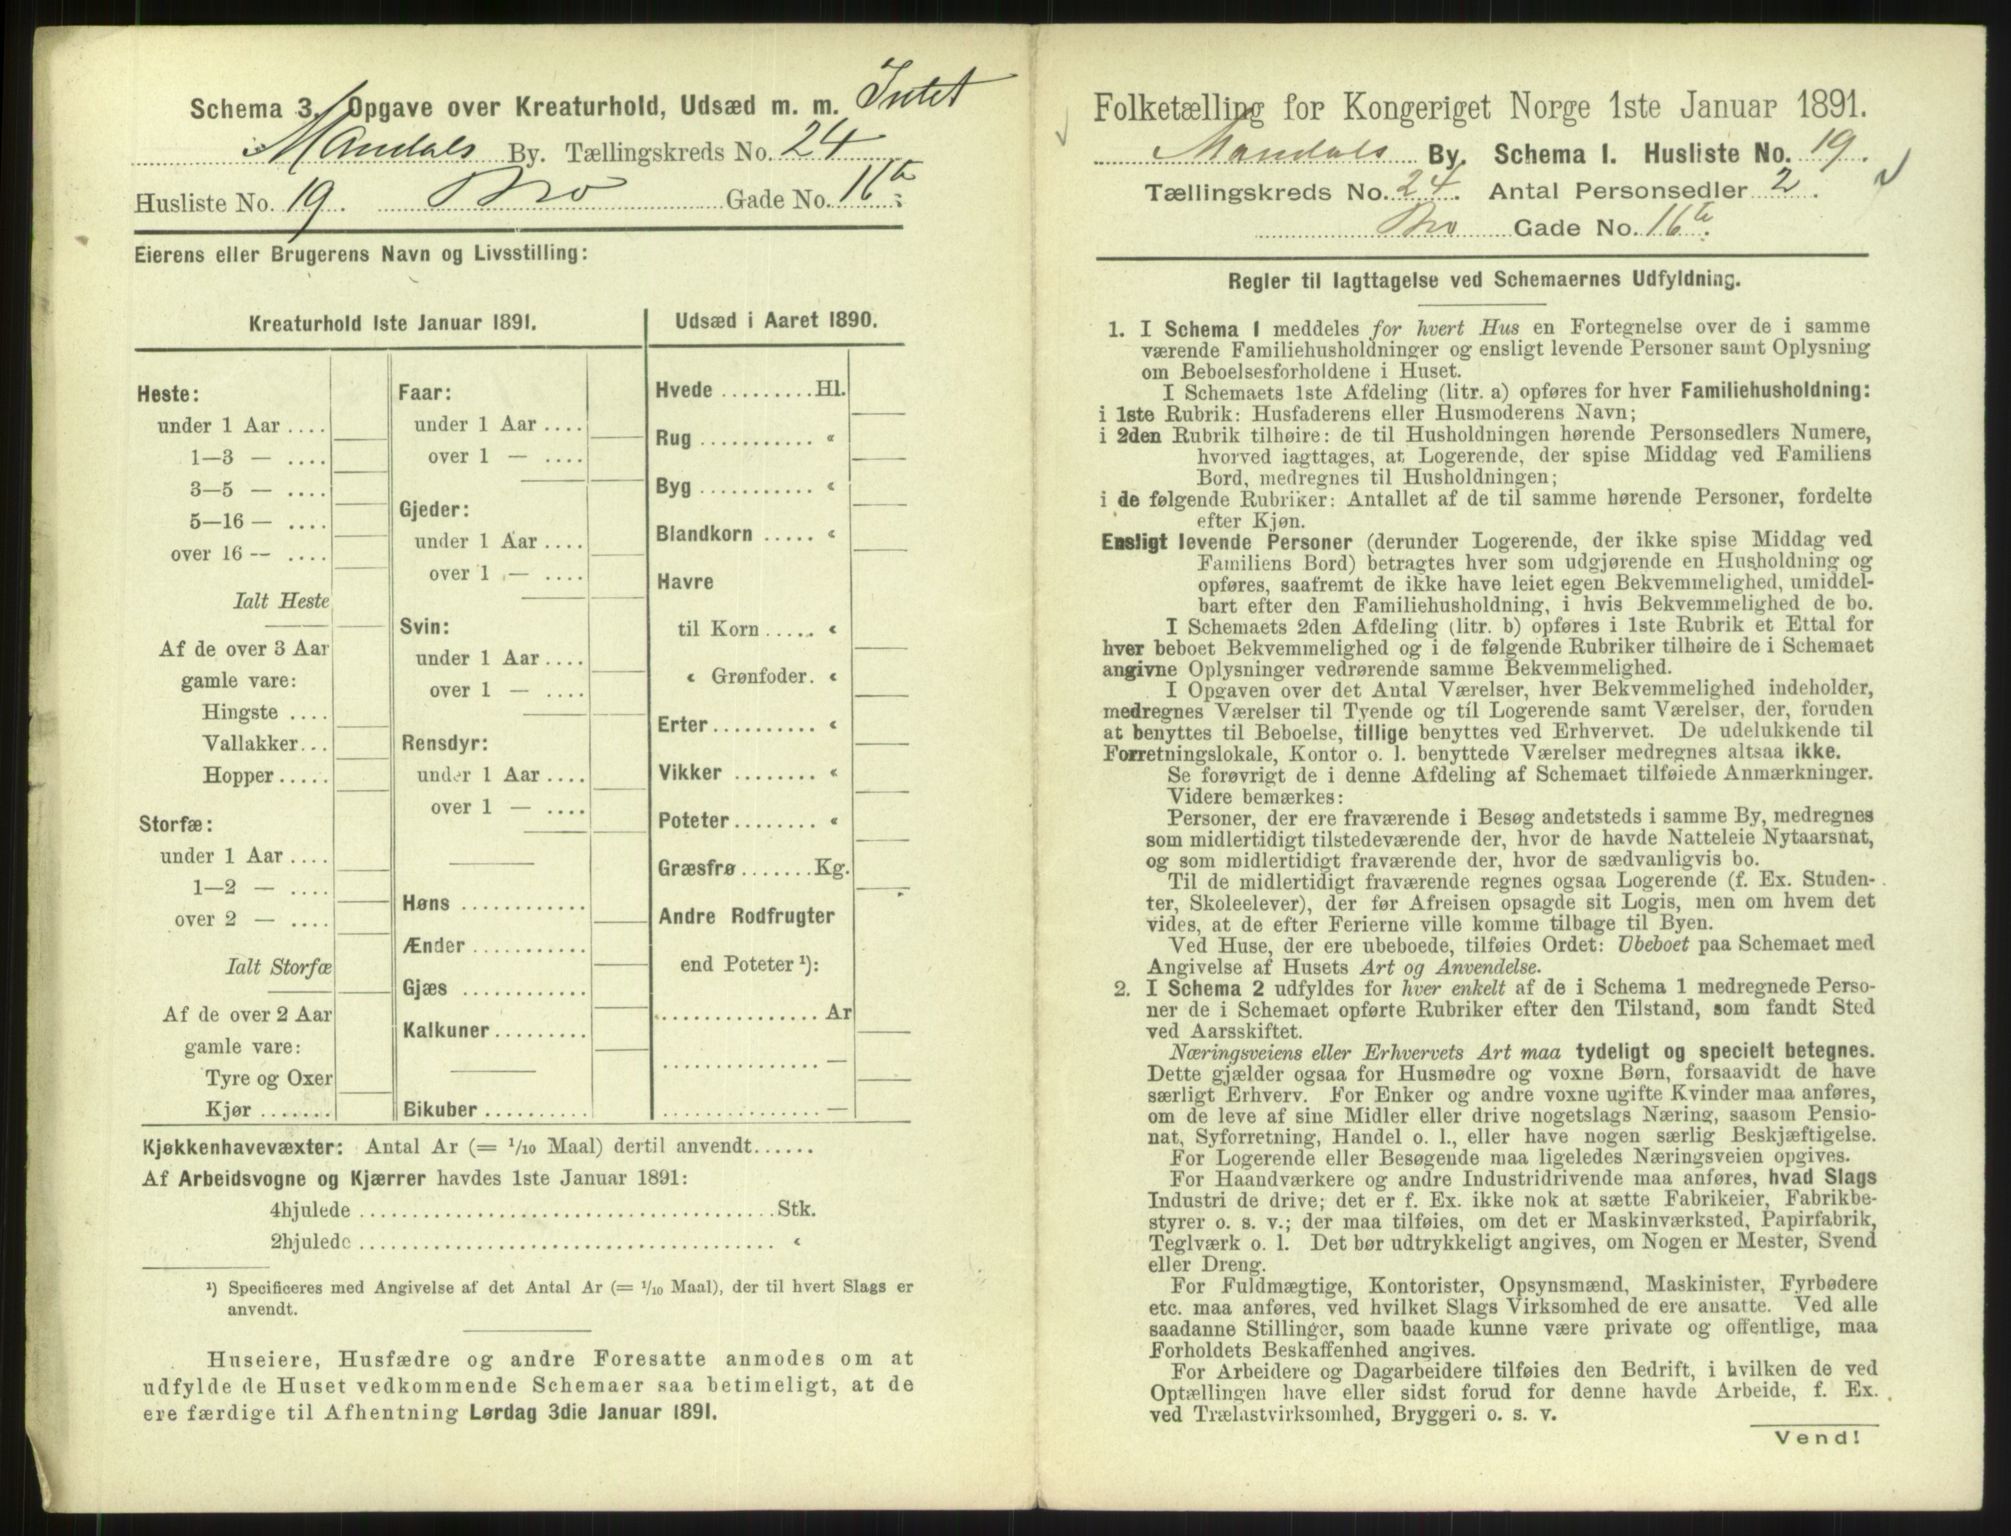 Schema 3. Opgave over Kreaturhold, Udsæd m. m. Intet
Mandals By. Tællingskreds No. 24
Husliste No. 19. Bro Gade No. 16b.
Eierens eller Brugerens Navn og Livsstilling:
Kreaturhold 1ste Januar 1891.
Heste:
under 1 Aar ....
1—3 — ....
3—5 — ....
5—16 — ....
over 16 — ....
Ialt Heste
Af de over 3 Aar
gamle vare:
Hingste ....
Vallakker...
Hopper.....
Storfæ:
under 1 Aar ....
1—2 — ....
over 2 — ....
Ialt Storfæ
Af de over 2 Aar
gamle vare:
Tyre og Oxer
Kjør .......
Faar:
under 1 Aar ....
over 1 — ....
Gjeder:
under 1 Aar ....
over 1 — ....
Svin:
under 1 Aar ....
over 1 — ....
Rensdyr:
under 1 Aar ....
over 1 — ....
Høns ............
Ænder ...........
Gjæs ............
Kalkuner.........
Bikuber ..........
Udsæd i Aaret 1890.
Hvede .........Hl.
Rug ........... «
Byg ........... «
Blandkorn ..... «
Havre
til Korn ..... «
« Grønfoder. «
Erter.......... «
Vikker ........ «
Poteter........ «
Græsfrø .......Kg.
Andre Rodfrugter
end Poteter ¹):
............... Ar
............... —
............... —
Kjøkkenhavevæxter: Antal Ar (= 1/10 Maal) dertil anvendt......
Af Arbeidsvogne og Kjærrer havdes 1ste Januar 1891:
4hjulede .......................................Stk.
2hjulede ....................................... «
¹) Specificeres med Angivelse af det Antal Ar (= 1/10 Maal), der til hvert Slags er
anvendt.
Huseiere, Husfædre og andre Foresatte anmodes om at
udfylde de Huset vedkommende Schemaer saa betimeligt, at de
ere færdige til Afhentning Lørdag 3die Januar 1891.
Folketælling for Kongeriget Norge 1ste Januar 1891.
Mandals By. Schema I. Husliste No. 19.
Tællingskreds No. 24. Antal Personsedler 2.
Bro Gade No. 16b.
Regler til Iagttagelse ved Schemaernes Udfyldning.
1. I Schema 1 meddeles for hvert Hus en Fortegnelse over de i samme
værende Familiehusholdninger og ensligt levende Personer samt Oplysning
om Beboelsesforholdene i Huset.
I Schemaets 1ste Afdeling (litr. a) opføres for hver Familiehusholdning:
i 1ste Rubrik: Husfaderens eller Husmoderens Navn;
i 2den Rubrik tilhøire: de til Husholdningen hørende Personsedlers Numere,
hvorved iagttages, at Logerende, der spise Middag ved Familiens
Bord, medregnes til Husholdningen;
i de følgende Rubriker: Antallet af de til samme hørende Personer, fordelte
efter Kjøn.
Ensligt levende Personer (derunder Logerende, der ikke spise Middag ved
Familiens Bord) betragtes hver som udgjørende en Husholdning og
opføres, saafremt de ikke have leiet egen Bekvemmelighed, umiddel-
bart efter den Familiehusholdning, i hvis Bekvemmelighed de bo.
I Schemaets 2den Afdeling (litr. b) opføres i 1ste Rubrik et Ettal for
hver beboet Bekvemmelighed og i de følgende Rubriker tilhøire de i Schemaet
angivne Oplysninger vedrørende samme Bekvemmelighed.
I Opgaven over det Antal Værelser, hver Bekvemmelighed indeholder,
medregnes Værelser til Tyende og til Logerende samt Værelser, der, foruden
at benyttes til Beboelse, tillige benyttes ved Erhvervet. De udelukkende til
Forretningslokale, Kontor o. l. benyttede Værelser medregnes altsaa ikke.
Se forøvrigt de i denne Afdeling af Schemaet tilføiede Anmærkninger.
Videre bemærkes:
Personer, der ere fraværende i Besøg andetsteds i samme By, medregnes
som midlertidigt tilstedeværende der, hvor de havde Natteleie Nytaarsnat,
og som midlertidigt fraværende der, hvor de sædvanligvis bo.
Til de midlertidigt fraværende regnes ogsaa Logerende (f. Ex. Studen-
ter, Skoleelever), der før Afreisen opsagde sit Logis, men om hvem det
vides, at de efter Ferierne ville komme tilbage til Byen.
Ved Huse, der ere ubeboede, tilføies Ordet: Ubeboet paa Schemaet med
Angivelse af Husets Art og Anvendelse.
2. I Schema 2 udfyldes for hver enkelt af de i Schema 1 medregnede Perso-
ner de i Schemaet opførte Rubriker efter den Tilstand, som fandt Sted
ved Aarsskiftet.
Næringsveiens eller Erhvervets Art maa tydeligt og specielt betegnes.
Dette gjælder ogsaa for Husmødre og voxne Børn, forsaavidt de have
særligt Erhverv. For Enker og andre voxne ugifte Kvinder maa anføres,
om de leve af sine Midler eller drive nogetslags Næring, saasom Pensio-
nat, Syforretning, Handel o. l., eller have nogen særlig Beskjæftigelse.
For Logerende eller Besøgende maa ligeledes Næringsveien opgives.
For Haandværkere og andre Industridrivende maa anføres, hvad Slags
Industri de drive; det er f. Ex. ikke nok at sætte Fabrikeier, Fabrikbe-
styrer o. s. v.; der maa tilføies, om det er Maskinværksted, Papirfabrik,
Teglværk o. l. Det bør udtrykkeligt angives, om Nogen er Mester, Svend
eller Dreng.
For Fuldmægtige, Kontorister, Opsynsmænd, Maskinister, Fyrbødere
etc. maa anføres, ved hvilket Slags Virksomhed de ere ansatte. Ved alle
saadanne Stillinger, som baade kunne være private og offentlige, maa
Forholdets Beskaffenhed angives.
For Arbeidere og Dagarbeidere tilføies den Bedrift, i hvilken de ved
Optællingen have eller sidst forud for denne havde Arbeide, f. Ex.
ved Trælastvirksomhed, Bryggeri o. s. v.
Vend!